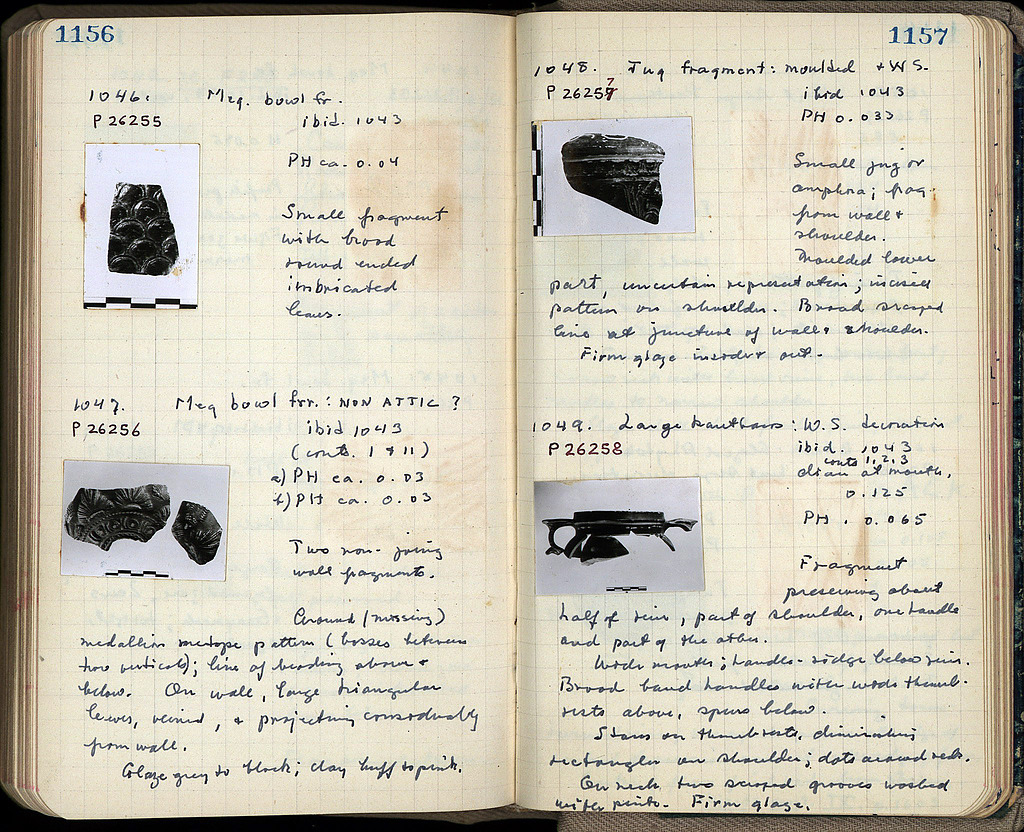 1156
1046. Meg. bowl fr.
P 26255
ibid. 1043
PH ca. 0.04
Small fragment
with broad
round ended
imbricated
leaves.
1047. Meg bowl frr.: NON ATTIC ?
P 26256
ibid 1043
(conts. 1 & 11)
a) PH ca. 0.03
b) PH ca. 0.03
Two non-joining
wall fragments.
Around (missing)
medallion metope pattern (bosses between
two verticals); line of beading above +
below. On wall, large triangular
leaves, veined, + projecting considerably
from wall.
Glaze grey to black; clay buff to pink.
1157
1048. Jug fragment: moulded + W.S.
P 26257
ibid 1043
PH 0.033
Small jug or
amphora; frag.
from wall +
shoulder.
Moulded lower
part, uncertain representation; incised
pattern on shoulder. Broad scraped
line at juncture of wall + shoulder.
Firm glaze inside + out.
1049. Large kantharos: W.S. decoration
P 26258
ibid. 1043
conts 1, 2, 3
diam at mouth,
0.125
PH. 0.065
Fragment
preserving about
half of rim, part of shoulder, one handle
and part of the other.
Wide mouth; handle-ridge below rim.
Broad band handles with wide thumb-
rests above, spurs below.
Stars on thumbrests, diminishing
rectangles on shoulder; dots around neck.
On neck two scraped grooves washed
with pink. Firm glaze.